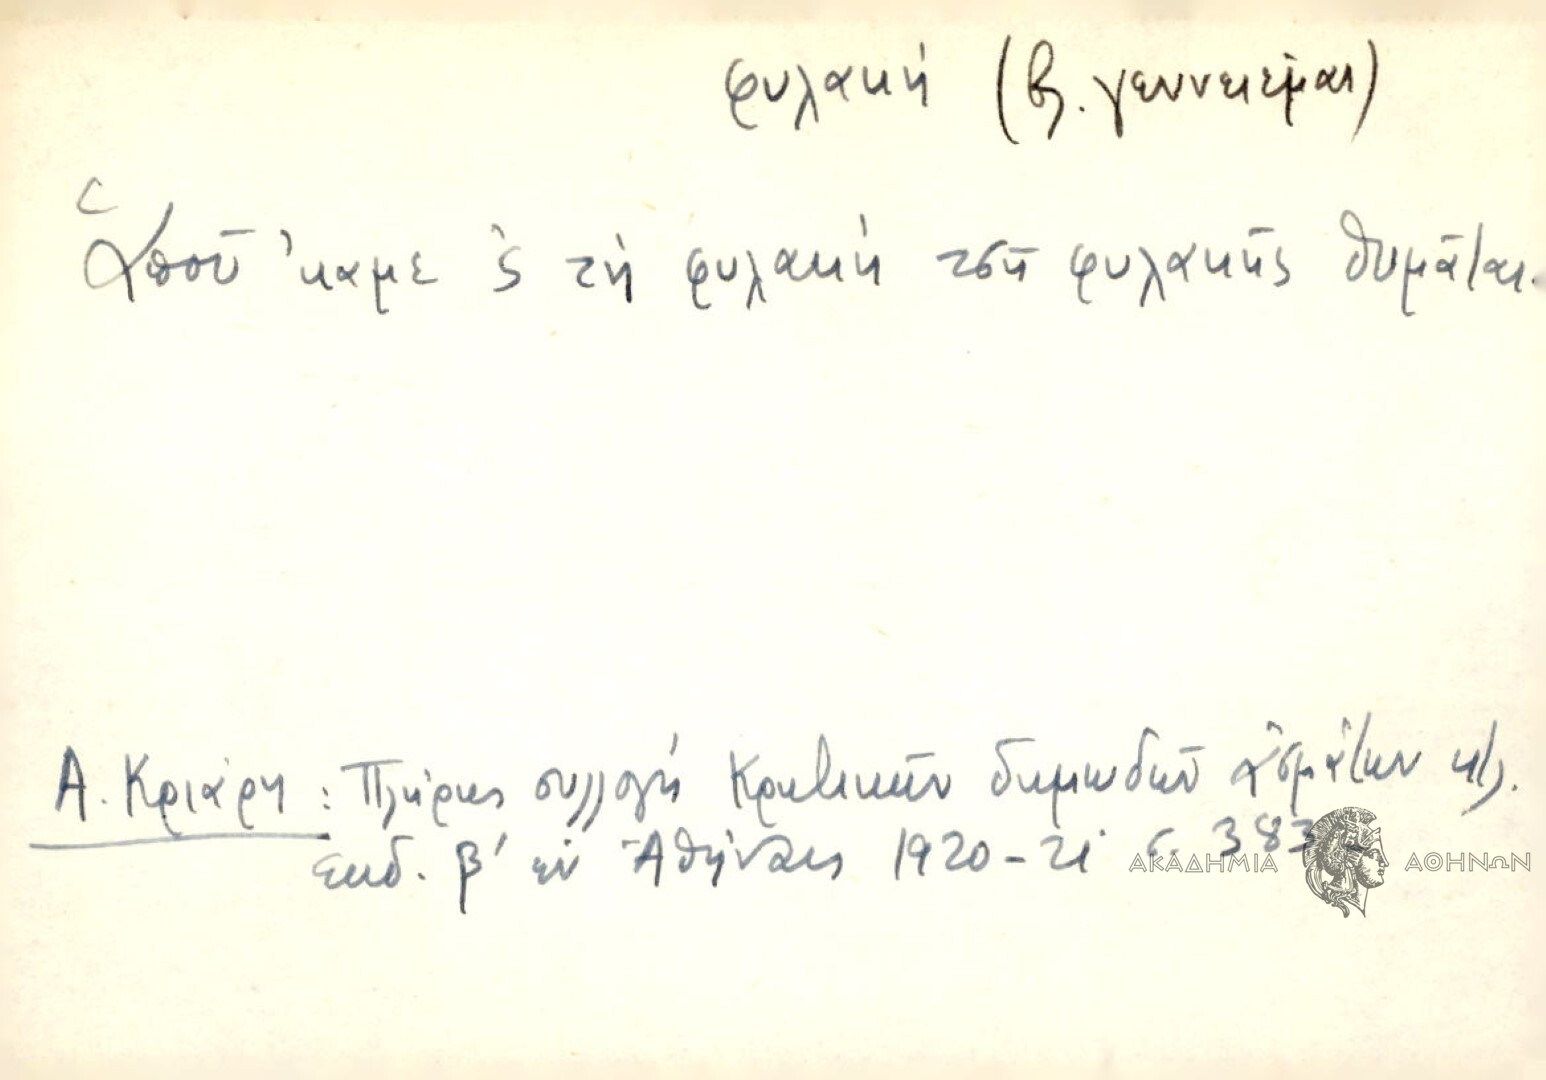 φυλακή (βλ. γεννειέμαι)
Ἁποῦ 'καμε 'ς τὴ φυλακὴ τσῆ φυλακῆς θυμᾶται.
Α. Κριάρη : Πλήρης συλλογὴ Κρητικῶν δημωδῶν ᾀσμάτων κτλ.
εκδ. β' ἐν Ἀθήναις 1920-21 σ. 383
ΑΚΑΔΗΜΙΑ ΑΘΗΝΩΝ